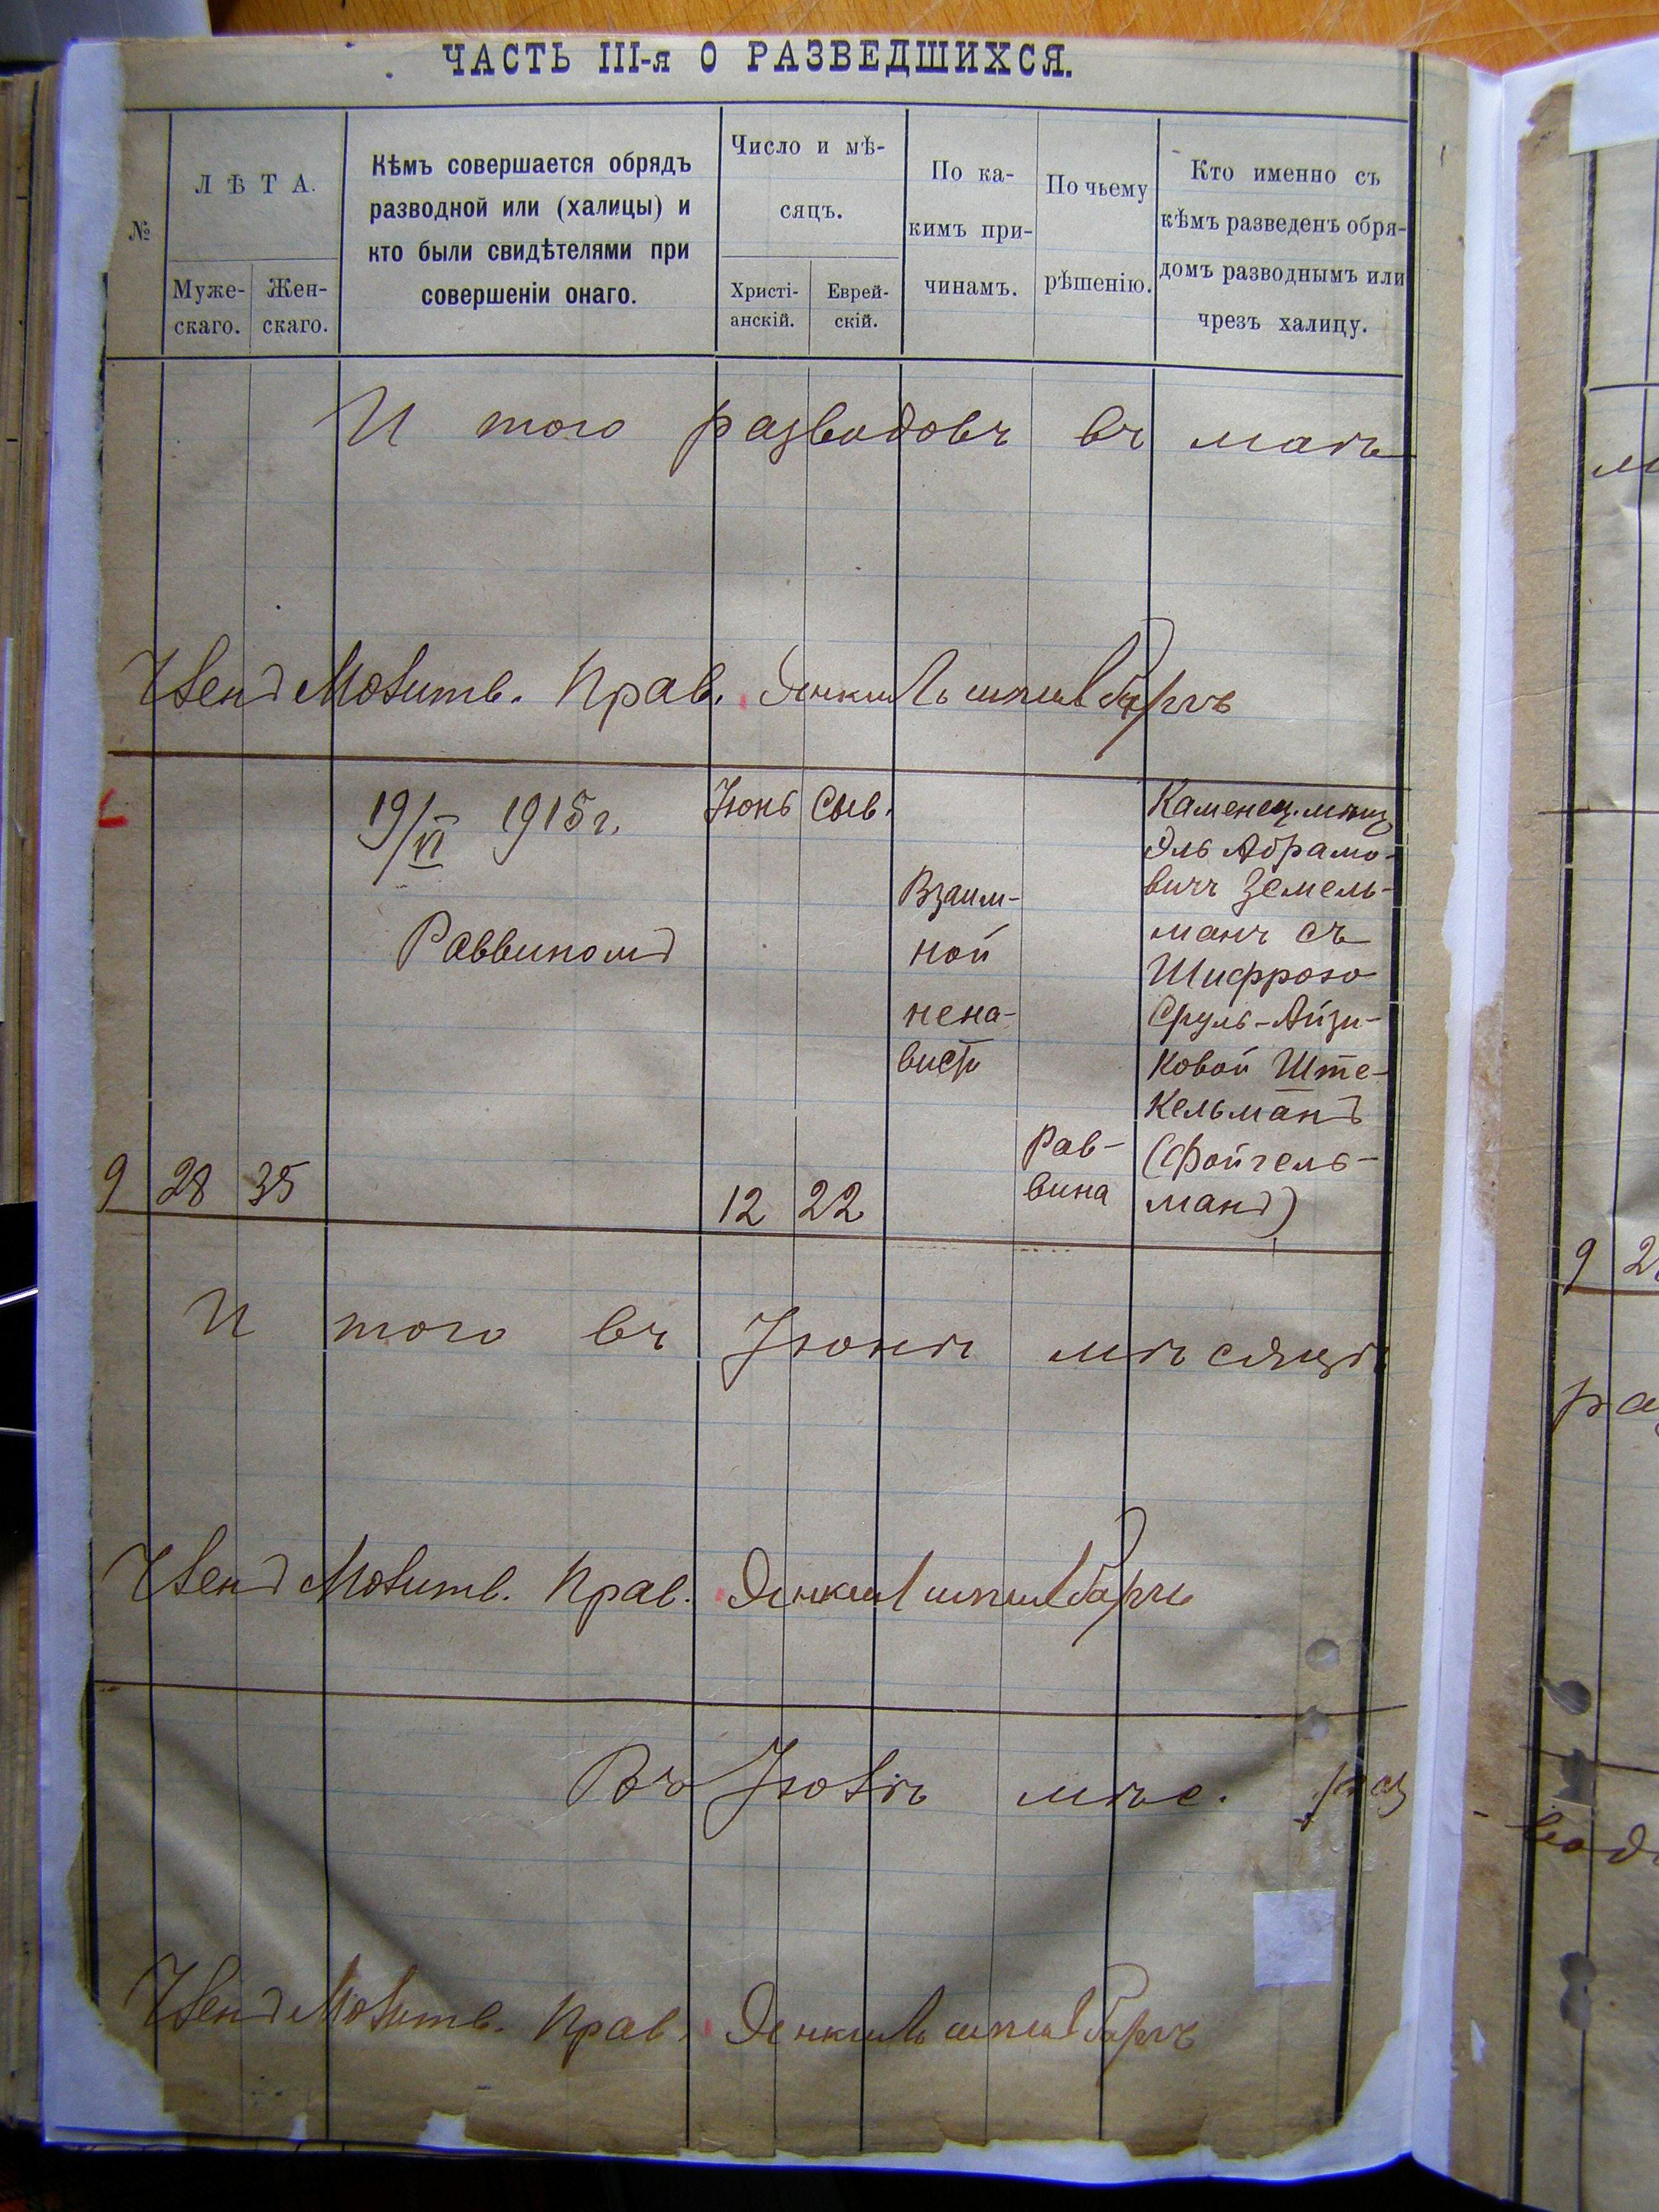 ЧАСТЬ III-я О РАЗВЕДШИХСЯ.
№
ЛѢТА.
Муже-
скаго.
Жен-
скаго.
Кѣмъ совершается обрядъ
разводной или (халицы) и
кто были свидѣтелями при
совершеніи онаго.
Число и мѣ-
сяцъ.
Христі-
анскій.
Еврей-
скій.
По ка-
кимъ при-
чинамъ.
По чьему
рѣшенію.
Кто именно съ
кѣмъ разведенъ обря-
домъ разводнымъ или
чрезъ халицу.
И того разводовъ въ маѣ
Членъ Молитв. Прав. Янкиль Шпилбергъ
9
28
35
19/VI 1915 г.
Раввиномъ
Іюнь
12
Сыв.
22
Взаим-
ной
нена-
висти
Рав-
вина
Каменец. мѣщ.
Эль Абрамо-
вичъ Земель-
манъ съ
Шифрою
Сруль-Айзи-
ковойШте-
кельманъ
(Фойгель-
манъ)
И того въ Іюнѣ мѣсяцѣ
Членъ Молитв. Прав. Янкил Шпилбергъ
Въ Іюлѣ мѣс. раз
Членъ Молитв. Прав. Янкиль Шпилбергъ
9
ра
вод